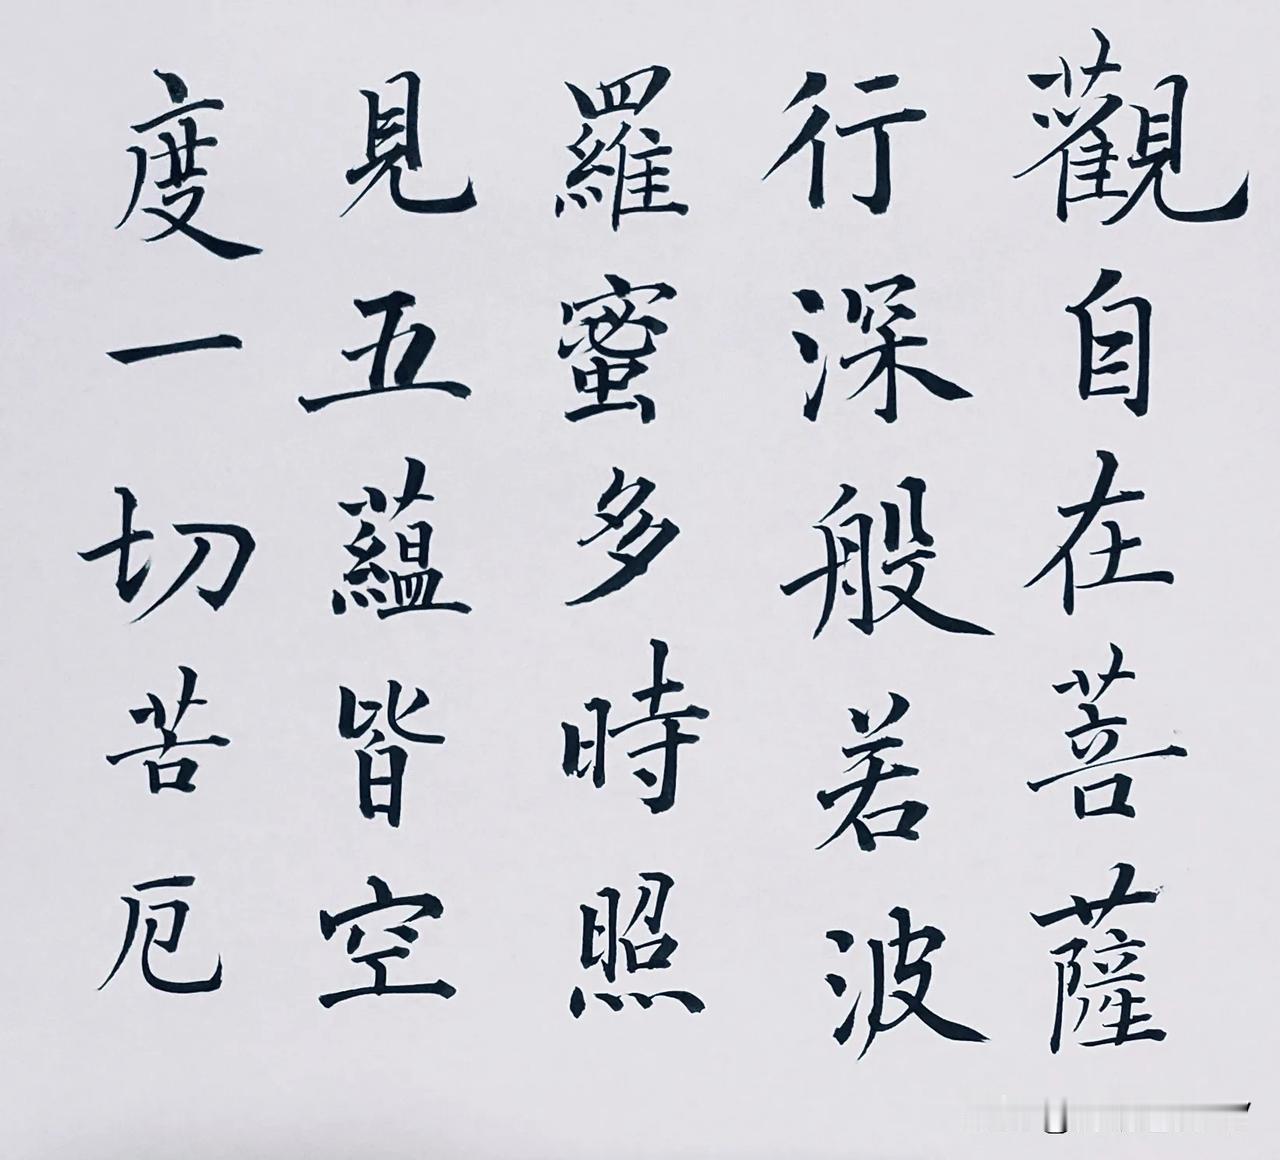 觀自在菩薩
行深般若波
羅蜜多時照
見五蘊皆空
度一切苦厄